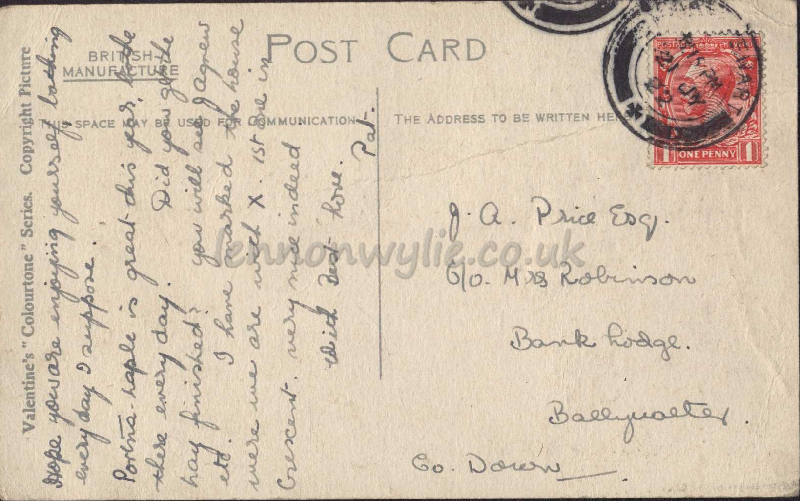 Valentine's "Colourtone" Series. Copyright Picture
BRITISH
MANUFACTURE
POST CARD
THIS SPACE MAY BE USED FOR COMMUNICATION
THE ADDRESS TO BE WRITTEN HERE
Hope you are enjoying yourself bathing
every day I suppose.
Portna-haple is great this year, bathe
there every day. Did you get the
hay finished? you will see J Agnew
etc. I have marked the house
were we are with X. 1st one in
Crescent. very nice indeed
With best love.
Pat.
J. A. Price Esq.
C/o. Mrs Robinson
Bank Lodge.
Ballywalter
Co. Down
POSTAGE REVENUE
1 ONE PENNY 1
lennonwylie.co.uk